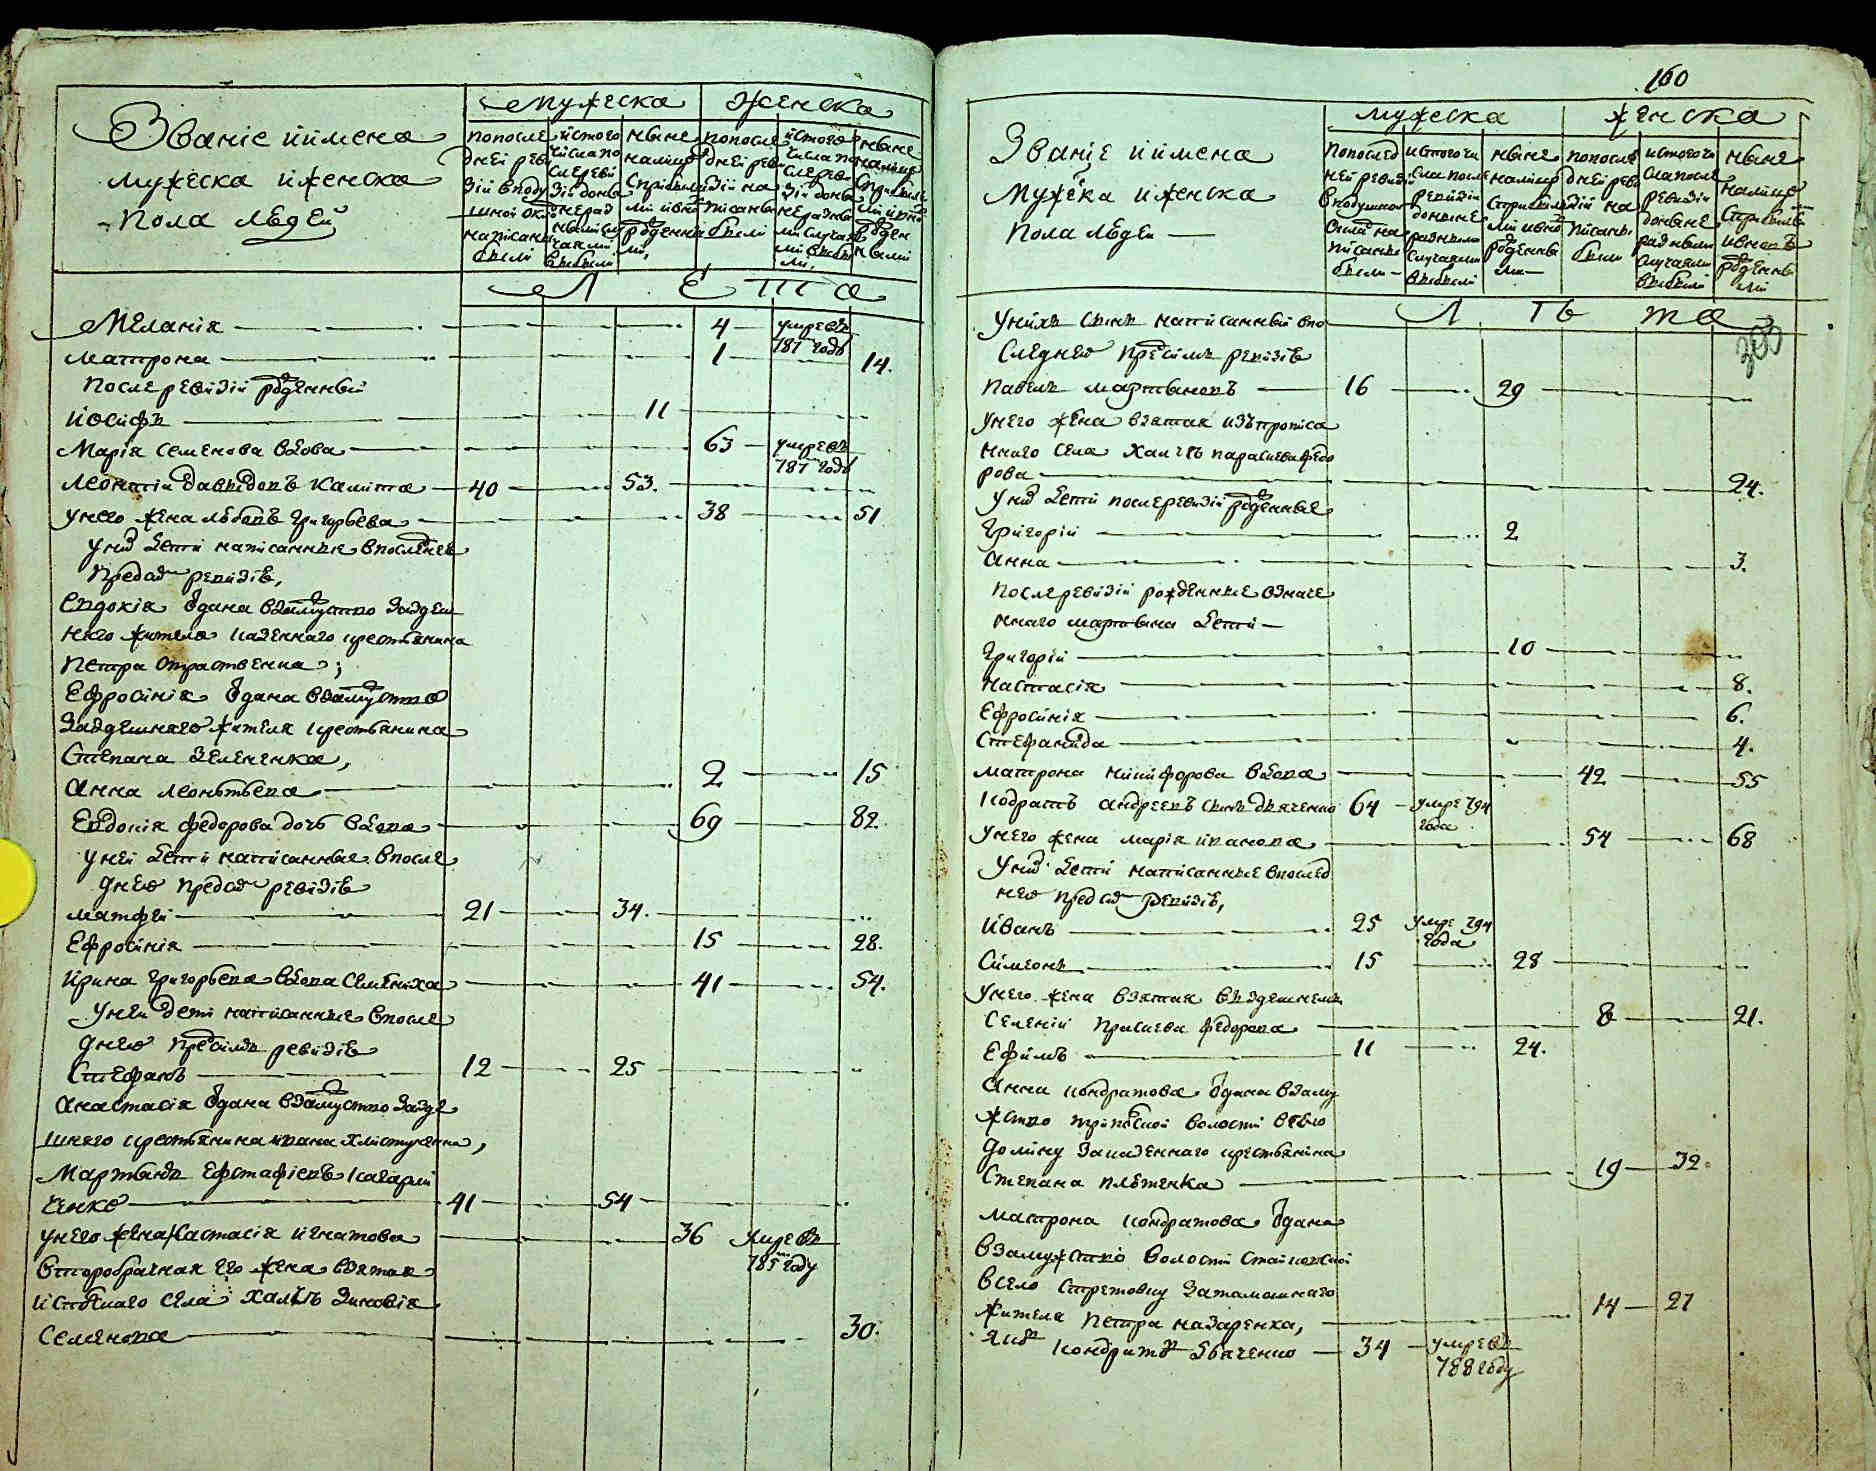 Званіе и имена
мужеска и женска
пола людей
мужеска женска
попосле
дней реви
зіи вподу
шной окладъ
написаны
были
изтого
числа по
сле реви
зіи до ны
не раз
ными слу
чаями
выбыли
ныне
налицо
сприбылы
ми ивно
рожденны
ми,
попосле
дней реви
зіи на
писаны
были
изтого
числа по
сле реви
зіи до ны
не разны
ми случая
ми выбы
ли,
ныне
налицо
сприбылы
ми ивно
рожден
ными
Л Е Т А
Меланія 4 умре въ 787 годѣ
матрона 1 14.
после ревизіи рожденный
Иосифъ 11
Марія Семенова вдова 63 умре въ 787 годѣ
Леонтій Давидовъ Калита 40 53.
унего жена любовь Григорьева 38 51
Унихъ дети написанные впоследне
пред сим ревизіе,
Евдокія одана взамуство зазде
него жителя казенного крестьянина
Петра Отраствення;
Ефросинія одана взамуство
заздешняго жителя крестьянина
Степана Зелененка,
Анна леонтьева 2 15
Евдокія федорова дочь вдова 69 82.
уней дети написанные впосле
днею пред сим ревизіе
матфей 21 34.
Ефросинія 15 28.
Ирина григорьева вдова Семениха 41 54.
Уней дети написанные впосле
днею пред симъ ревизіе
Стефанъ 12 25
Анастасія одана взамуство зазде
шняго крестьянина ивана хлистуненка,
Мартынъ Ефстафіевъ Качарій
ченко 41 54
унего жена Настасія игнатова 36 умре въ 785 году
второбрачная его жена взятая
истоеяго села Халчъ Зиновія
Семенова 30.
160
Званіе и имена
Мужеска и женска
пола людей
мужеска женска
попослед
ней ревизіи
вподушном
окладъ на
писаны
были
изтого чи
сла после
ревизіи
доныне
разными
случаями
выбыли
ныне
налицо
сприбылы
ми ивно
рожденны
ми
попосле
дней реви
зіи на
писаны
были
изтого чи
сла после
ревизіи
доныне
разными
случаями
выбыли
ныне
налицо
сприбылы
ивновъ
рожденны
ми
Л ѣ т а
Унихъ сынъ написанный впо
следнею пред симъ ревизіе
Павелъ мартыновъ 16 29
унего жена взятая изъ прописа
нного села Халчъ параскева федо
рова 24.
Унихъ дети после ревизіи рожденные
Григорій 2
Анна 3.
после ревизіи рожденные означе
нного мартына дети
Григорій 10
Настасія 8.
Ефросинія 6.
Стефанида 4.
матрона никифорова вдова 42 55
Кодратъ андреевъ сынъ дяченко 64 умре 794 года
Унего жена марія иванова 54 68
Унихъ дети написанные вполед
нею пред сим ревизіе,
Иванъ 25 умре 794 года
Симеонъ 15 28
Унего жена взятая вздешнемъ
селеніи Праскева федорова 8 21.
Ефимъ 11 24.
Анна кондратова одана взаму
жство трипской волости всело
долину заказенного крестьянина
Степана плетенка 19 32.
матрона кондратова одана
взамужство волости Стайковской
всело стретовку затамошнего
жителя петра назаренка, 14 27
Яковъ кондратовъ дьяченко 34 умре въ 788 году